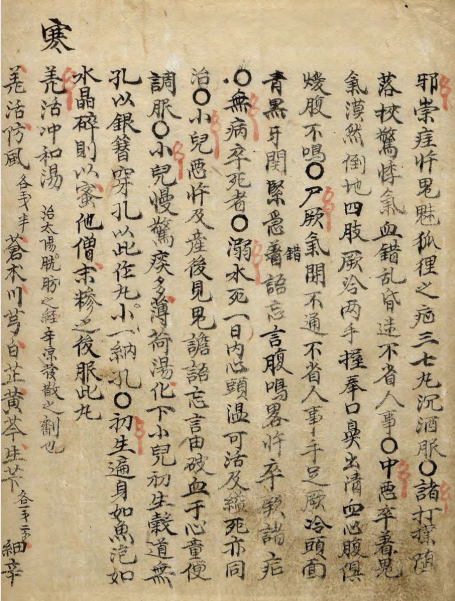 邪崇疰忤鬼魅狐狸之疟三七丸沉酒服〇諸打撲墮
落挍驚悸氣血錯乱昏迷不省人事〇中悪卒着鬼
氣漠然倒地四肢厥冷两手握拳口鼻出清血心腹俱
煖腹不鳴〇尸厥氣閉不通不省人事手足厥冷頭面
青黑牙関緊急錯語忘言腹鳴畧忤卒厥諸疟
〇無病卒死者〇溺水死一日内心頭温可活及縊死亦同
治〇小兒悪忤及産後見鬼譫語忘言由破血于心童便
調服〇小兒慢驚痰多薄荷湯化下小兒初生穀道無
孔以銀簪穿孔以此作丸小一納孔〇初生遍身如魚泡如
水晶碎則以蜜他僧末糝之後服此丸
寒
羗活冲和湯 治太陽膀胱之経辛凉發散之劑也
羗活防風各戋半蒼朮川芎白芷黄芩生芐各一戋二分細辛